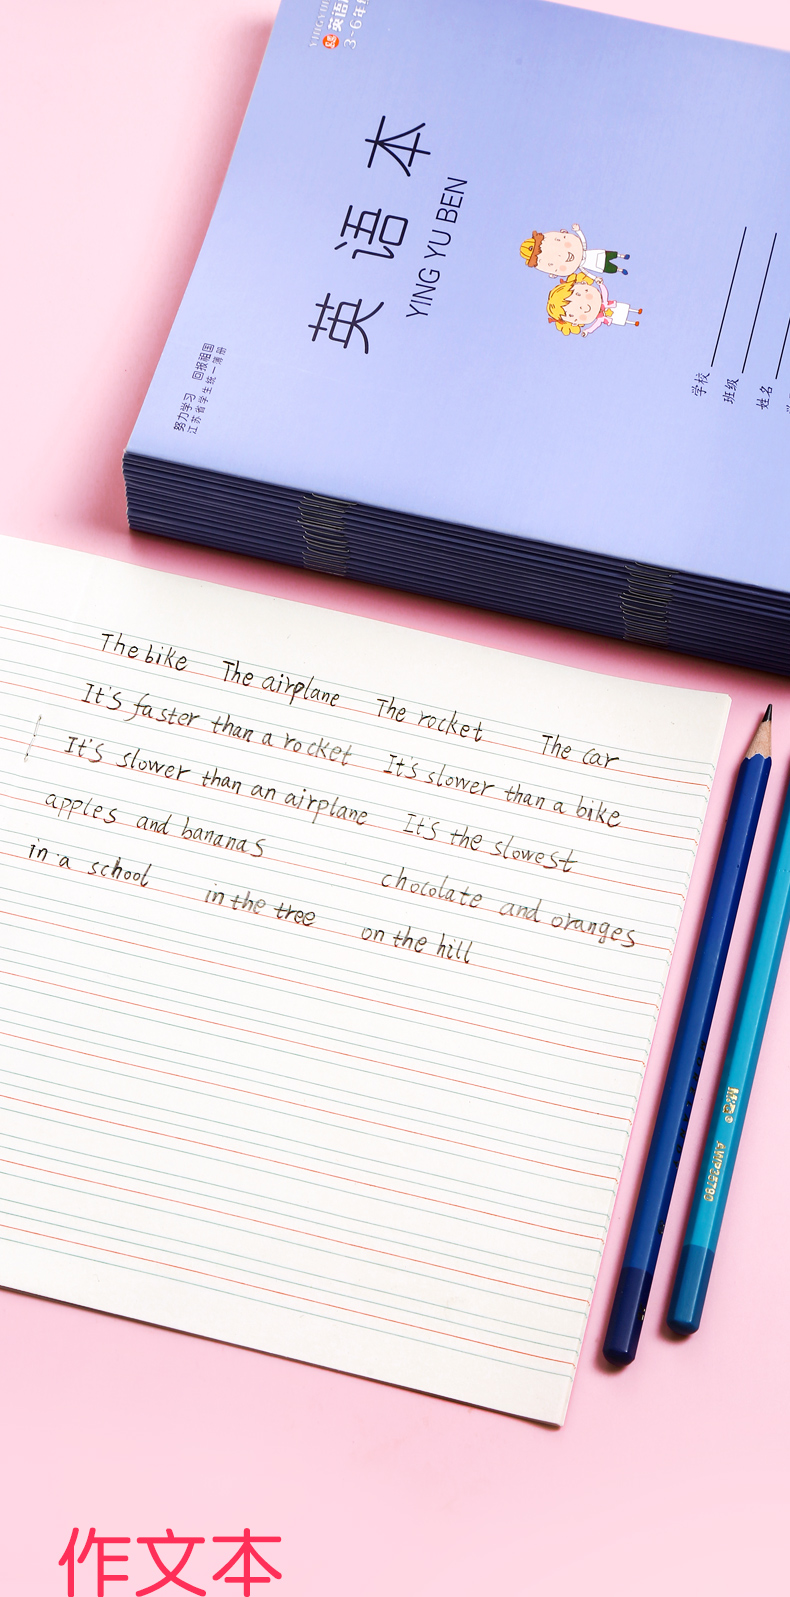 英语
3-6年级
英语本
YING YU BEN
努力学习 回报祖国
江苏省学生统一簿册
学校
班级
姓名
The bike The airplane The rocket The car
It's faster than a rocket It's slower than a bike
It's slower than an airplane It's the slowest
apples and bananas chocolate and oranges
in a school in the tree on the hill
M&G
AWP35790
作文本